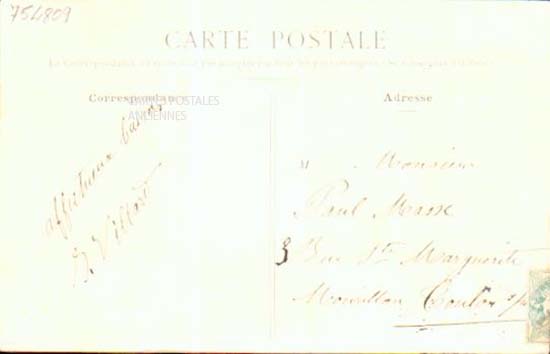 754809
CARTE POSTALE
Correspondance
CARTES POSTALES
ANCIENNES
affectueux baisers
Villard
Adresse
M Monsieur
Paul Masse
3 Rue Ste Marguerite
Mourillon Toulon s/m